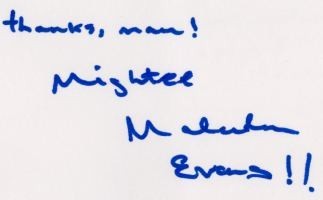 thanks, man!
Mightee
Malcolm
Evans!!